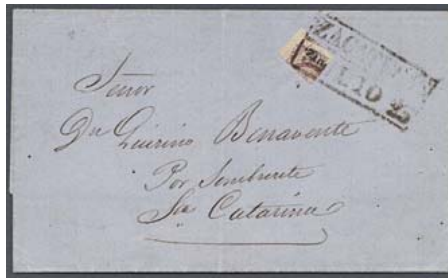 ZACATECAS
JULIO 25
Señor
Dn Quirino Benavente
Por Sombrerete
Sta Catarina